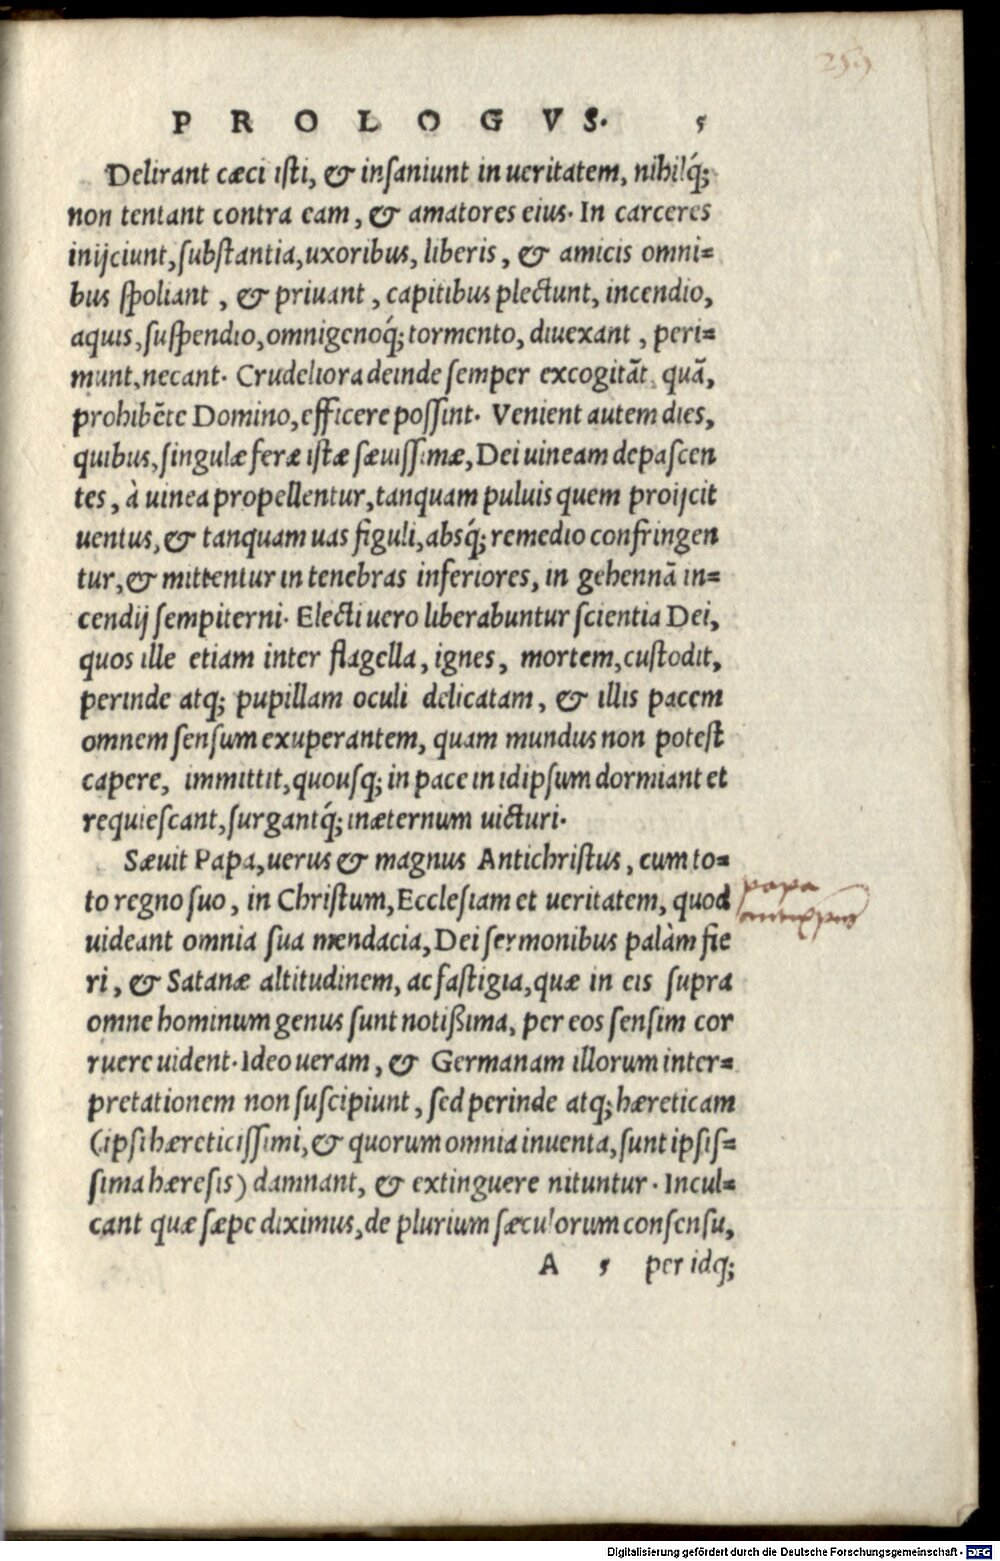 259
PROLOGVS. 5
Delirant cæci isti, & insaniunt in ueritatem, nihilq́;
non tentant contra eam, & amatores eius. In carceres
inijciunt, substantia, uxoribus, liberis, & amicis omni=
bus spoliant, & priuant, capitibus plectunt, incendio,
aquis, suspendio, omnigenoq́; tormento, diuexant, peri=
munt, necant. Crudeliora deinde semper excogitãt, quã,
prohibẽte Domino, efficere possint. Venient autem dies,
quibus, singulæ feræ istæ sæuissimæ, Dei uineam depascen
tes, à uinea propellentur, tanquam puluis quem proijcit
uentus, & tanquam uas figuli, absq́; remedio confringen
tur, & mittentur in tenebras inferiores, in gehennã in=
cendij sempiterni. Electi uero liberabuntur scientia Dei,
quos ille etiam inter flagella, ignes, mortem, custodit,
perinde atq; pupillam oculi delicatam, & illis pacem
omnem sensum exuperantem, quam mundus non potest
capere, immittit, quousq; in pace in idipsum dormiant et
requiescant, surgantq́; inæternum uicturi.
Sæuit Papa, uerus & magnus Antichristus, cum to=
to regno suo, in Christum, Ecclesiam et ueritatem, quod
uideant omnia sua mendacia, Dei sermonibus palàm fie
ri, & Satanæ altitudinem, ac fastigia, quæ in eis supra
omne hominum genus sunt notißima, per eos sensim cor
ruere uident. Ideo ueram, & Germanam illorum inter=
pretationem non suscipiunt, sed perinde atq; hæreticam
(ipsi hæreticissimi, & quorum omnia inuenta, sunt ipsis=
sima hæresis) damnant, & extinguere nituntur. Incul=
cant quæ sæpe diximus, de plurium sæculorum consensu,
A 5 per idq;
papa
Digitalisierung gefördert durch die Deutsche Forschungsgemeinschaft - DFG